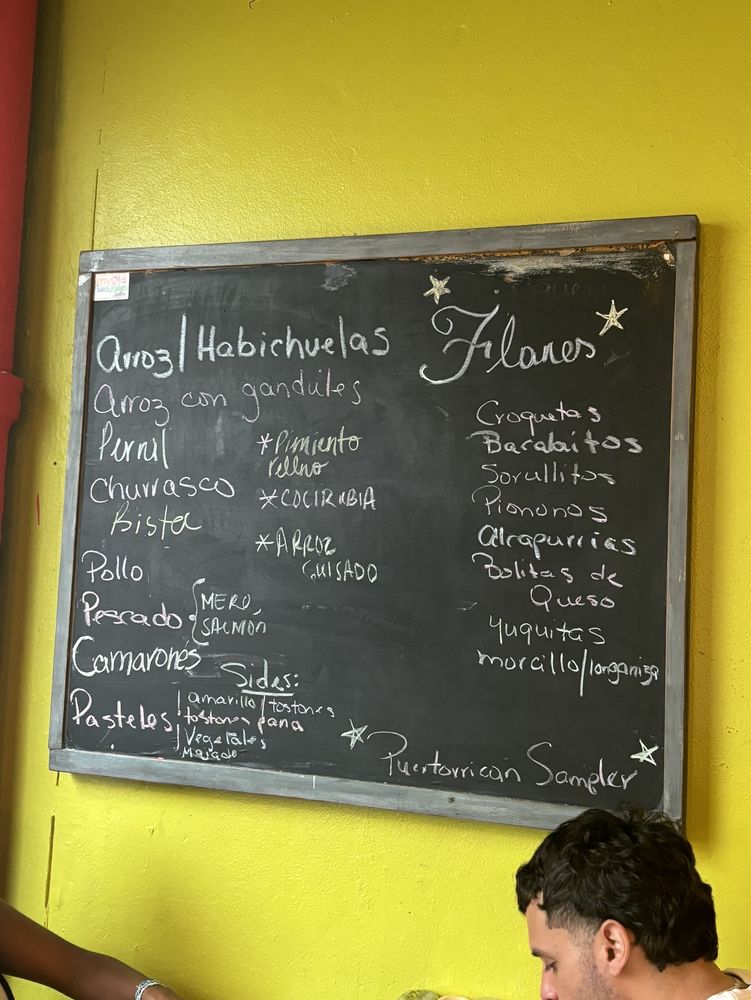 Arroz/Habichuelas
Arroz con gandules
Pernil
Churrasco
Bistec
Pollo
Pescado { MERO,
SALMÓN
Camarones
Pasteles
* Pimiento
relleno
* ARROZ
GUISADO
Sides:
amarillo/tostones
tostones pana
Vegetales
Majado
Flanes
Croquetas
Bacalaitos
Sorullitos
Piononos
Alcapurrias
Bolitas de
Queso
Yuquitas
morcillo/longaniza
Puertorrican Sampler